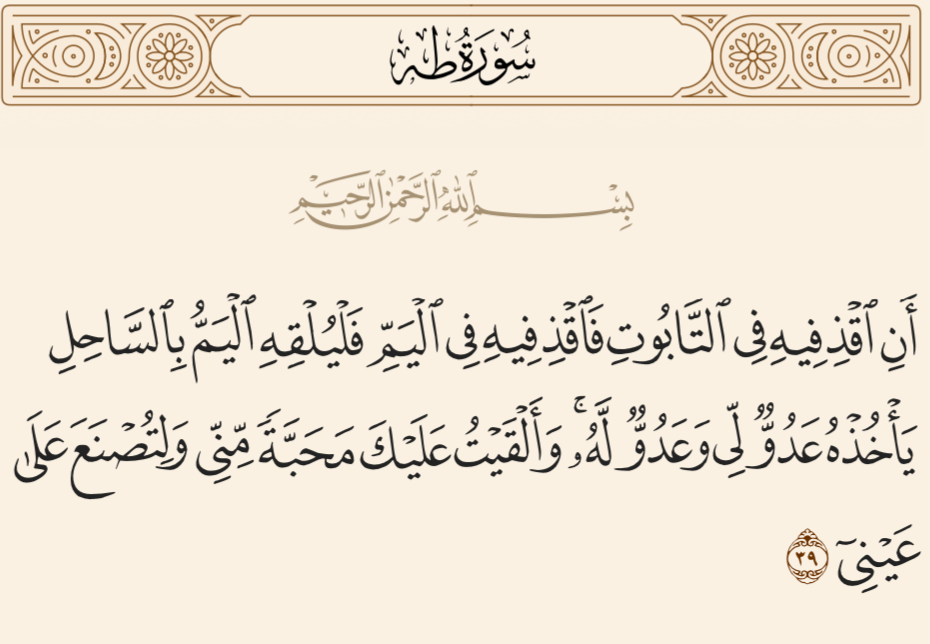 سُورَةُ طه
بِسْمِ ٱللَّهِ ٱلرَّحْمَٰنِ ٱلرَّحِيمِ
أَنِ ٱقْذِفِيهِ فِى ٱلتَّابُوتِ فَٱقْذِفِيهِ فِى ٱلْيَمِّ فَلْيُلْقِهِ ٱلْيَمُّ بِٱلسَّاحِلِ
يَأْخُذْهُ عَدُوٌّ لِّى وَعَدُوٌّ لَّهُۥ ۚ وَأَلْقَيْتُ عَلَيْكَ مَحَبَّةً مِّنِّى وَلِتُصْنَعَ عَلَىٰ
عَيْنِىٓ ٣٩